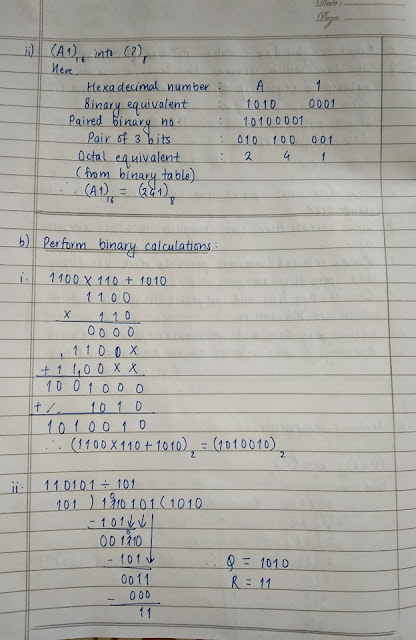 Date :
Page:
ii) (A1)16 into (?)8
Here,
Hexadecimal number : A 1
Binary equivalent : 1010 0001
Paired binary no. : 10100001
Pair of 3 bits : 010 100 001
Octal equivalent : 2 4 1
(from binary table)
∴ (A1)16 = (241)8
b) Perform binary calculations :
i. 1100 × 110 + 1010
1100
× 110
0000
1100×
+1100××
1001000
+ 1010
1010010
∴ (1100×110+1010)2 = (1010010)2
ii. 110101 ÷ 101
101 ) 110101 ( 1010
- 101
00110
- 101 ∴ Q = 1010
0011 R = 11
- 000
11